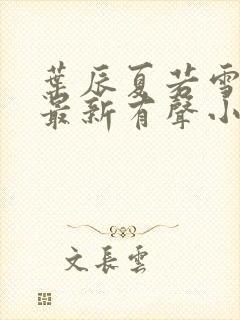 葉辰夏若雪
最新有聲小
文長雲